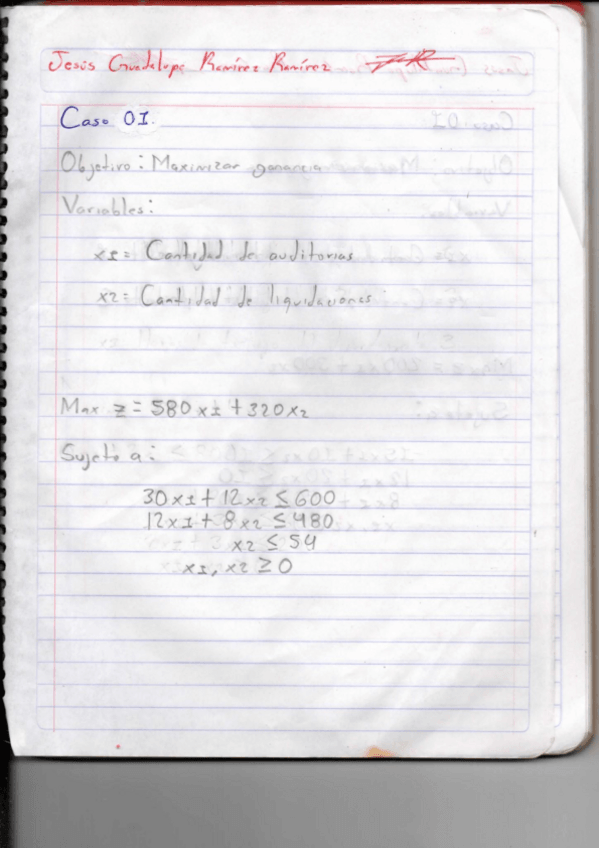 Jesús Guadalupe Ramírez Ramírez
Caso 01.
Objetivo: Maximizar ganancia
Variables:
x1= Cantidad de auditorias
x2= Cantidad de liquidaciones
Max z = 580x1 + 320x2
Sujeto a:
30x1 + 12x2 ≤ 600
12x1 + 8x2 ≤ 480
x2 ≤ 54
x1, x2 ≥ 0